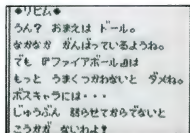 ◆リビム◆
うん? おまえは ドール。
なかなか がんばっているようね。
でも 『ファイアボール』は
もっと うまくつかわないと ダメね。
ボスキャラには・・・
じゅうぶん 弱らせてからでないと
こうかが ないわよ!